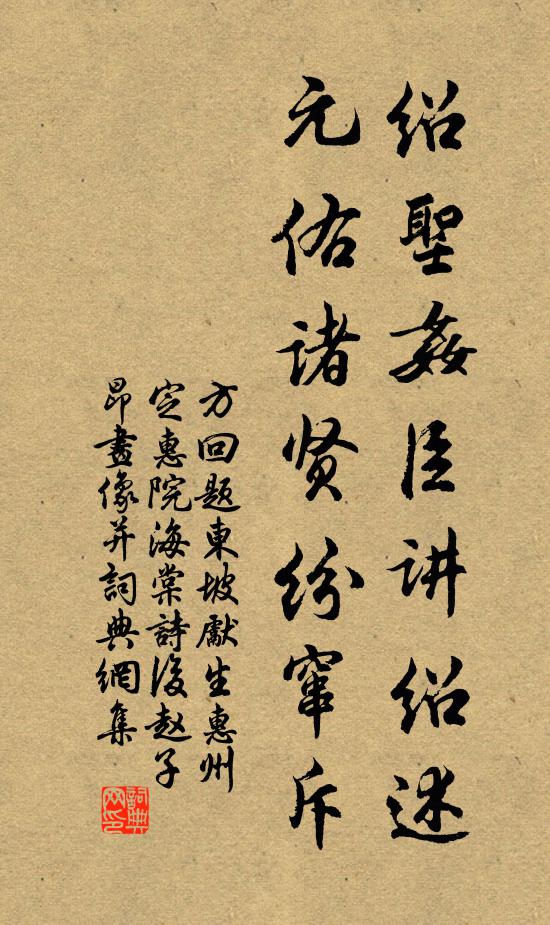 绍聖姦臣讲绍述
元佑诸贤纷窜斥
方回题東坡獻生惠州
定惠院海棠詩後赵子
昂畫像并詞典網集
詞典网印